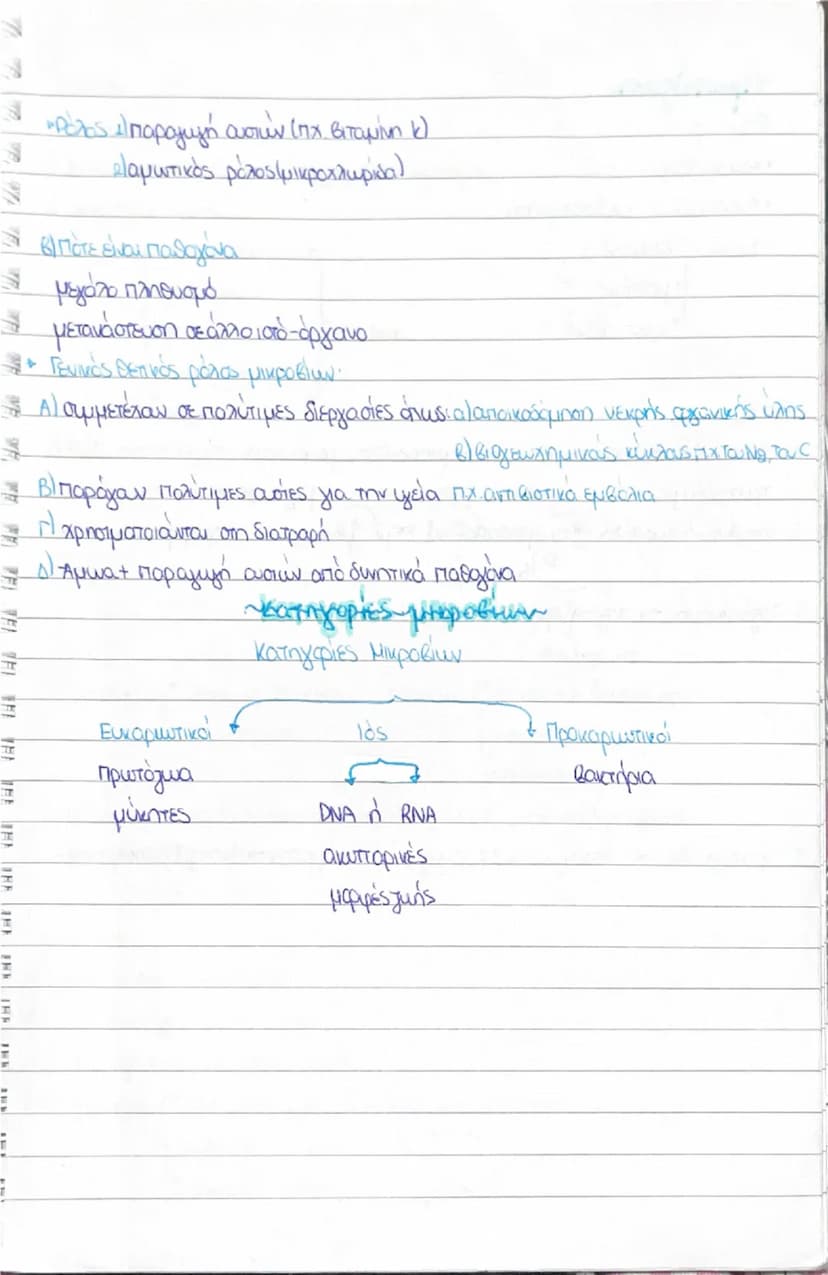 •Ρόλος 1) παραγωγή ουσιών (πχ. βιταμίνη Κ)
2) αμυντικός ρόλος (μικροχλωρίδα)
Β) Πότε είναι παθογόνα
μεγάλο πληθυσμό
μετανάστευση σε άλλο ιστό-όργανο
• Γενικός θετικός ρόλος μικροβίων·
Α) συμμετέχουν σε πολύτιμες διεργασίες όπως: α) αποικοδόμηση νεκρής οργανικής ύλης
β) βιογεωχημικούς κύκλους πχ του Ν₂, του C
Β) Παράγουν πολύτιμες ουσίες για την υγεία πχ. αντιβιοτικά εμβόλια
Γ) χρησιμοποιούνται στη διατροφή
Δ) Άμυνα + παραγωγή ουσιών από δυνητικά παθογόνα
~Κατηγορίες μικροβίων~
Κατηγορίες Μικροβίων
Ευκαρυωτικοί Ιός Προκαρυωτικοί
πρωτόζωα βακτήρια
μύκητες DNA ή RNA
ακυτταρικές
μορφές ζωής